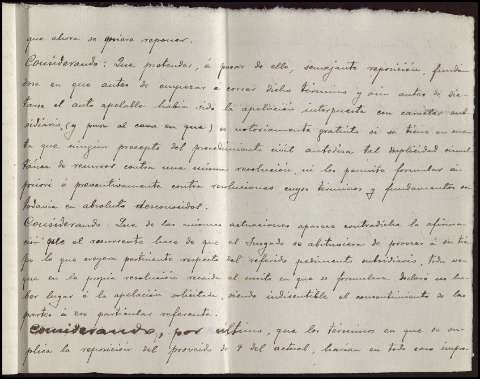 que ahora se quiera reponer.
Considerando: Que pretender, á pesar de ello, semejante reposición, fundán
dose en que antes de empezar á correr dicho término y aún antes de dic-
tarse el auto apelable había sido la apelación interpuesta con carácter sub
sidiario, (y pasa al caso en que) es notoriamente gratuito si se tiene en cuen
ta que ningún precepto del procedimiento civil autoriza tal duplicidad simul
tánea de recursos contra una misma resolución, ni les permite formular á
priori ó preventivamente contra resoluciones cuyos términos y fundamentos son
todavía en absoluto desconocidos.
Considerando: Que de las mismas actuaciones aparece contradicha la afirma-
ción que el recurrente hace de que el Juzgado se abstuviera de proveer á su tiem
po lo que creyera pertinente respecto del referido pedimento subsidiario, toda vez
que en la propia resolución recaída al escrito en que se formulara declaró no ha-
ber lugar á la apelación solicitada, siendo indiscutible el consentimiento de las
partes á ese particular referente.
Considerando, por último, que los términos en que se su-
plica la reposición del proveído de 9 del actual, harían en todo caso impo-